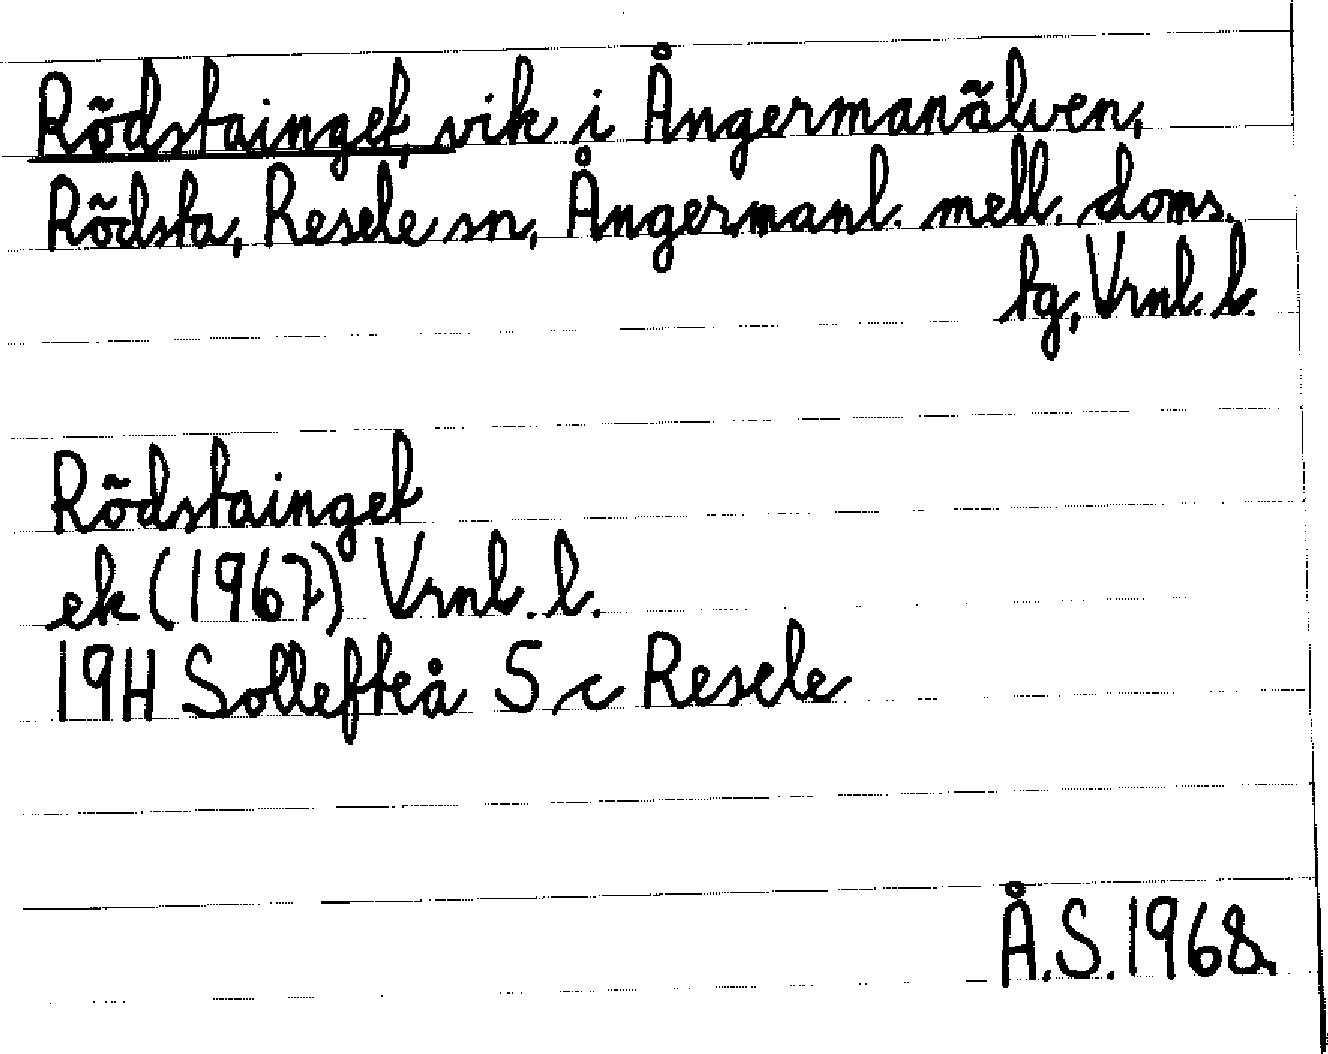 Rödstainget, vik i Ångermanälven,
Rödsta, Resele sn, Ångermanl. mell. doms.
tg, Vrnl. l.
Rödstainget
ek (1967) Vrnl. l.
19H Sollefteå 5 c Resele
Å.S. 1968